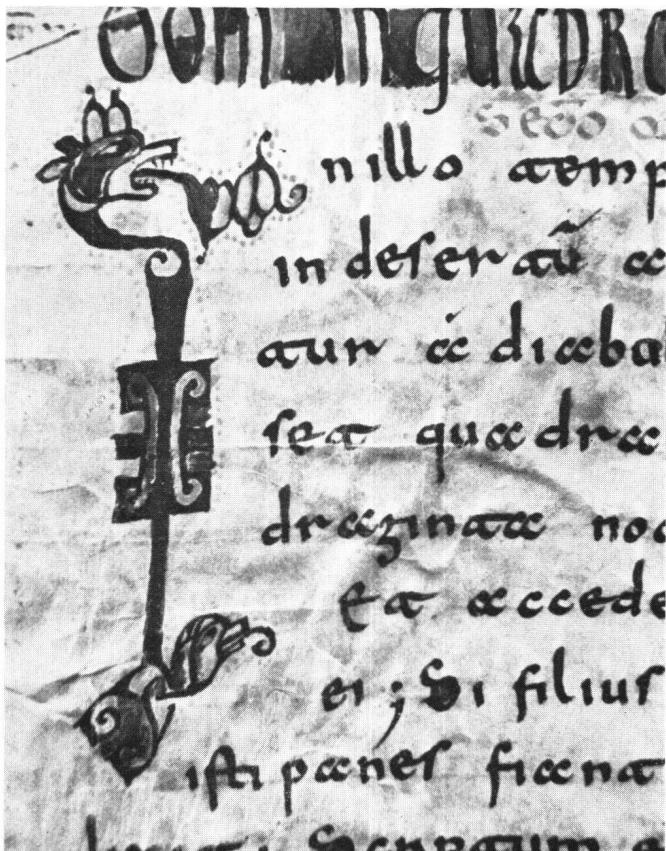 DOM I IN QUADRA
In illo temp
in desertū a
tur a diabo
set quadra
draginta noc
Et accede
ei; Si filius
isti panes fiant
Scriptum